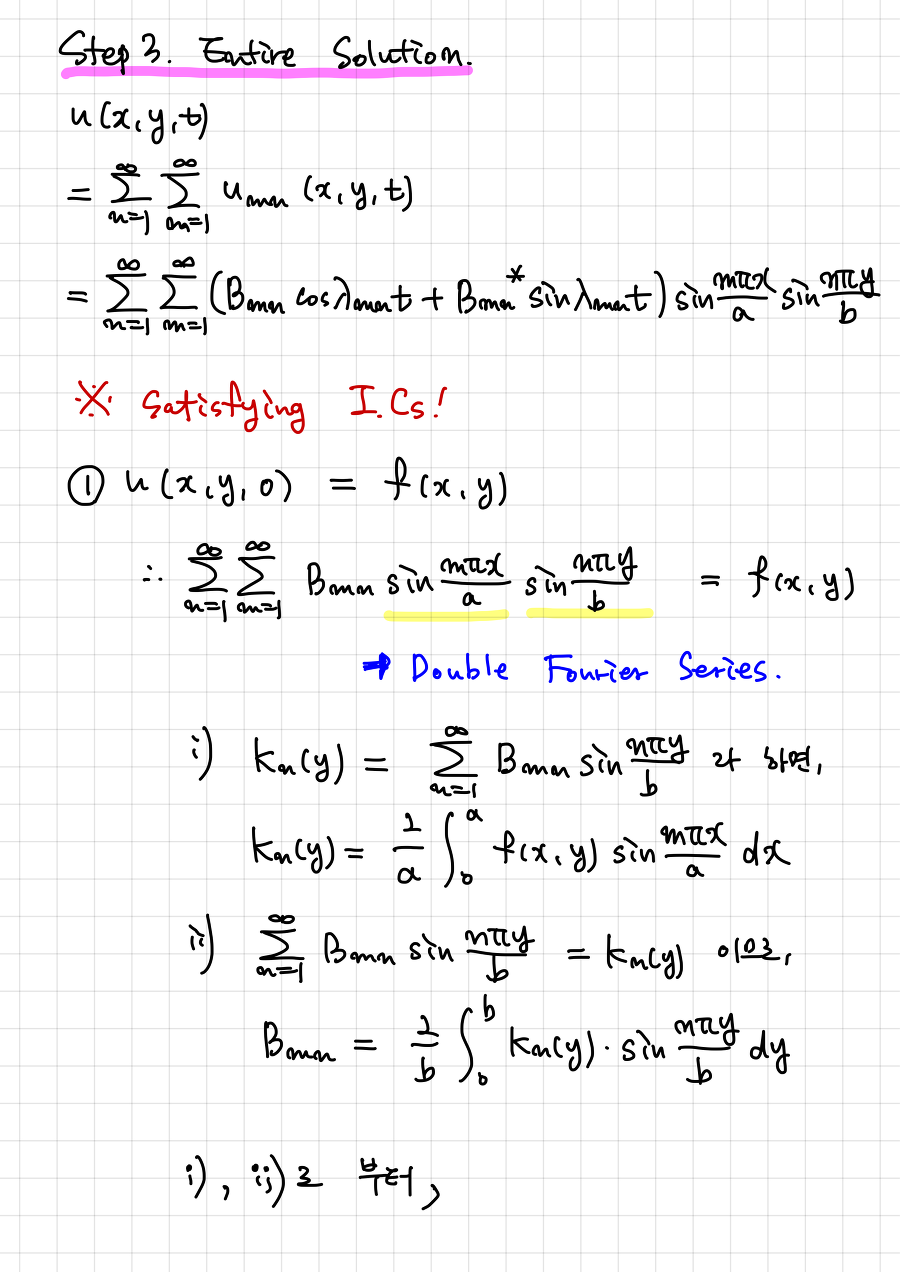 Step 3. Entire Solution.
u(x,y,t)
= ∑_{n=1}^{∞} ∑_{m=1}^{∞} u_{mn} (x,y,t)
= ∑_{n=1}^{∞} ∑_{m=1}^{∞} (B_{mn} cosλ_{mn}t + B_{mn}^* sinλ_{mn}t) sin\frac{mπx}{a} sin\frac{nπy}{b}
※ Satisfying I.Cs!
① u(x,y,0) = f(x,y)
∴ ∑_{n=1}^{∞} ∑_{m=1}^{∞} B_{mn} sin\frac{mπx}{a} sin\frac{nπy}{b} = f(x,y)
→ Double Fourier Series.
i) K_m(y) = ∑_{n=1}^{∞} B_{mn} sin\frac{nπy}{b} 라 하면,
K_m(y) = \frac{2}{a} ∫_0^a f(x,y) sin\frac{mπx}{a} dx
ii) ∑_{n=1}^{∞} B_{mn} sin\frac{nπy}{b} = K_m(y) 이므로,
B_{mn} = \frac{2}{b} ∫_0^b K_m(y)·sin\frac{nπy}{b} dy
i), ii)로 부터,